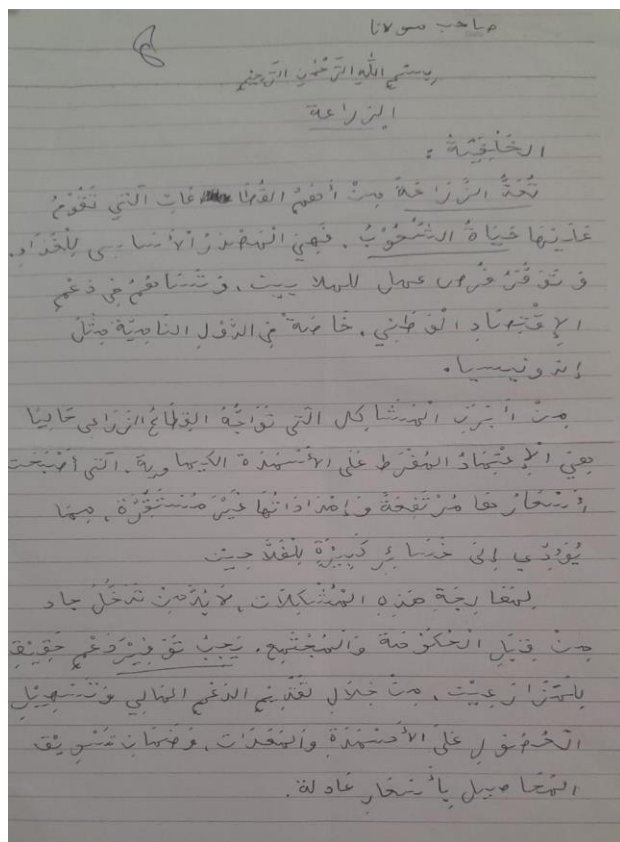 صاحب مولانا
بِسْمِ اللهِ الرَّحْمٰنِ الرَّحِيْمِ
الزراعة
الخَلْفِيَّةُ :
تُعَدُّ الزِّرَاعَةُ مِنْ أَهَمِّ القُطَاعَاتِ الَّتِي تَقُوْمُ
عَلَيْهَا حَيَاةُ الشُّعُوْبُ. فَهِيَ الْمَصْدَرُ الْأَسَاسِى لِلْغَذَاءِ.
وَتَوَفَّرُ فُرَص عمل للملايين، وَتُسَاهِمُ فِي دَعْمِ
الإِقْتِصَادِ الْوَطَنِي. خَاصَةً فِي الدُّوَلِ النَّامِيَّة مِثْلُ
إندونيسيا.
مِنْ أَبْرَزِ الْمَشَاكِلِ الَّتِي تَوَاجُّهُ القِطَاعُ الزِّرَاعِى حَالِيًا
هِيَ الْإِعْتِمَادُ المُفْرَط عَلَى الأَسْمَدَة الكيماوية. الَّتى أَصْبَحَت
أَسْعَارُهَا مُرْتَفِعَةً وَإِمْدَادَاتُهَا غَيْرَ مُسْتَقِرَّة، مِمَا
يُؤَدِّي إِلَى خَسَائِر كَبِيْرَةٍ لِلْفَلَّاحِيْنَ
لِمُعَارِجَة هَذِهِ الْمُشْكِلَات، لَابُدَّ مِنْ تَدَخُّلَ جاد
مِنْ قِبَلِ الْحُكُوْمَة وَالْمُجْتَمِع. يَجِبُ تَوْفِيْرَ دَعْمٍ حَقِيْقِ
بِالْمُزَارِعِيْنَ، مِنْ خِلَالِ تَقْدِيْمِ الدَعْمِ المَالِي وَتَسْهِيْلِ
الْحُصُوْلِ عَلَى الأَسْمَدَةِ وَالْمُعَدَات، وَضَمَانِ تَسْوِيْقِ
المَحَاصِيلِ بِأَسْعَارِ عَادِلَة.